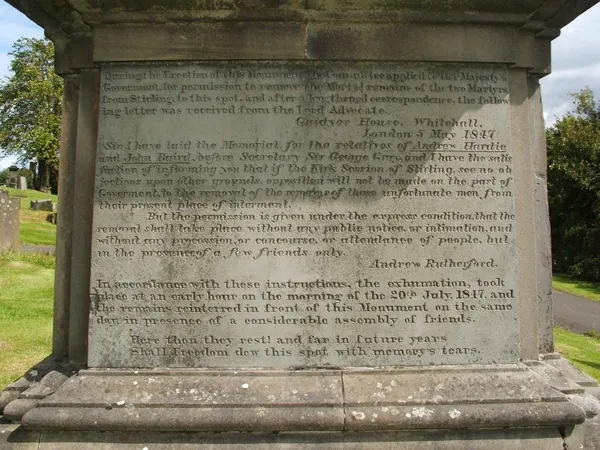 During the Erection of this Monument, the Committee applied to Her Majesty's
Goverment, for permission to remove the Mortal remains of the two Martyrs
from Stirling, to this spot, and after a lengthened correspondence, the follow
ing letter was received from the Lord Advocate.
Guidyor House, Whitehall,
London 5 May 1847
Sir I have laid the Memorial, for the relatives of Andrew Hardie
and John Baird, before Secretary Sir George Gray, and I have the satis
faction of informing you that if the Kirk Session of Stirling, see no ob
jections upon other grounds, opposition will not be made on the part of
Goverment, to the removal of the remains of those unfortunate men from
their present place of interment.
But the permission is given under the express condition, that the
removal shall take place without any public notice, or intimation, and
without any procession, or concourse, or attendance of people, but
in the presence of a few friends only.
Andrew Rutherford.
In accordance with these instructions, the exhumation, took
place at an early hour on the morning of the 20th July, 1847, and
the remains reinterred in front of this Monument on the same
day, in presence of a considerable assembly of friends.
Here then they rest! and far in future years
Shall freedom dew this spot with memory's tears.